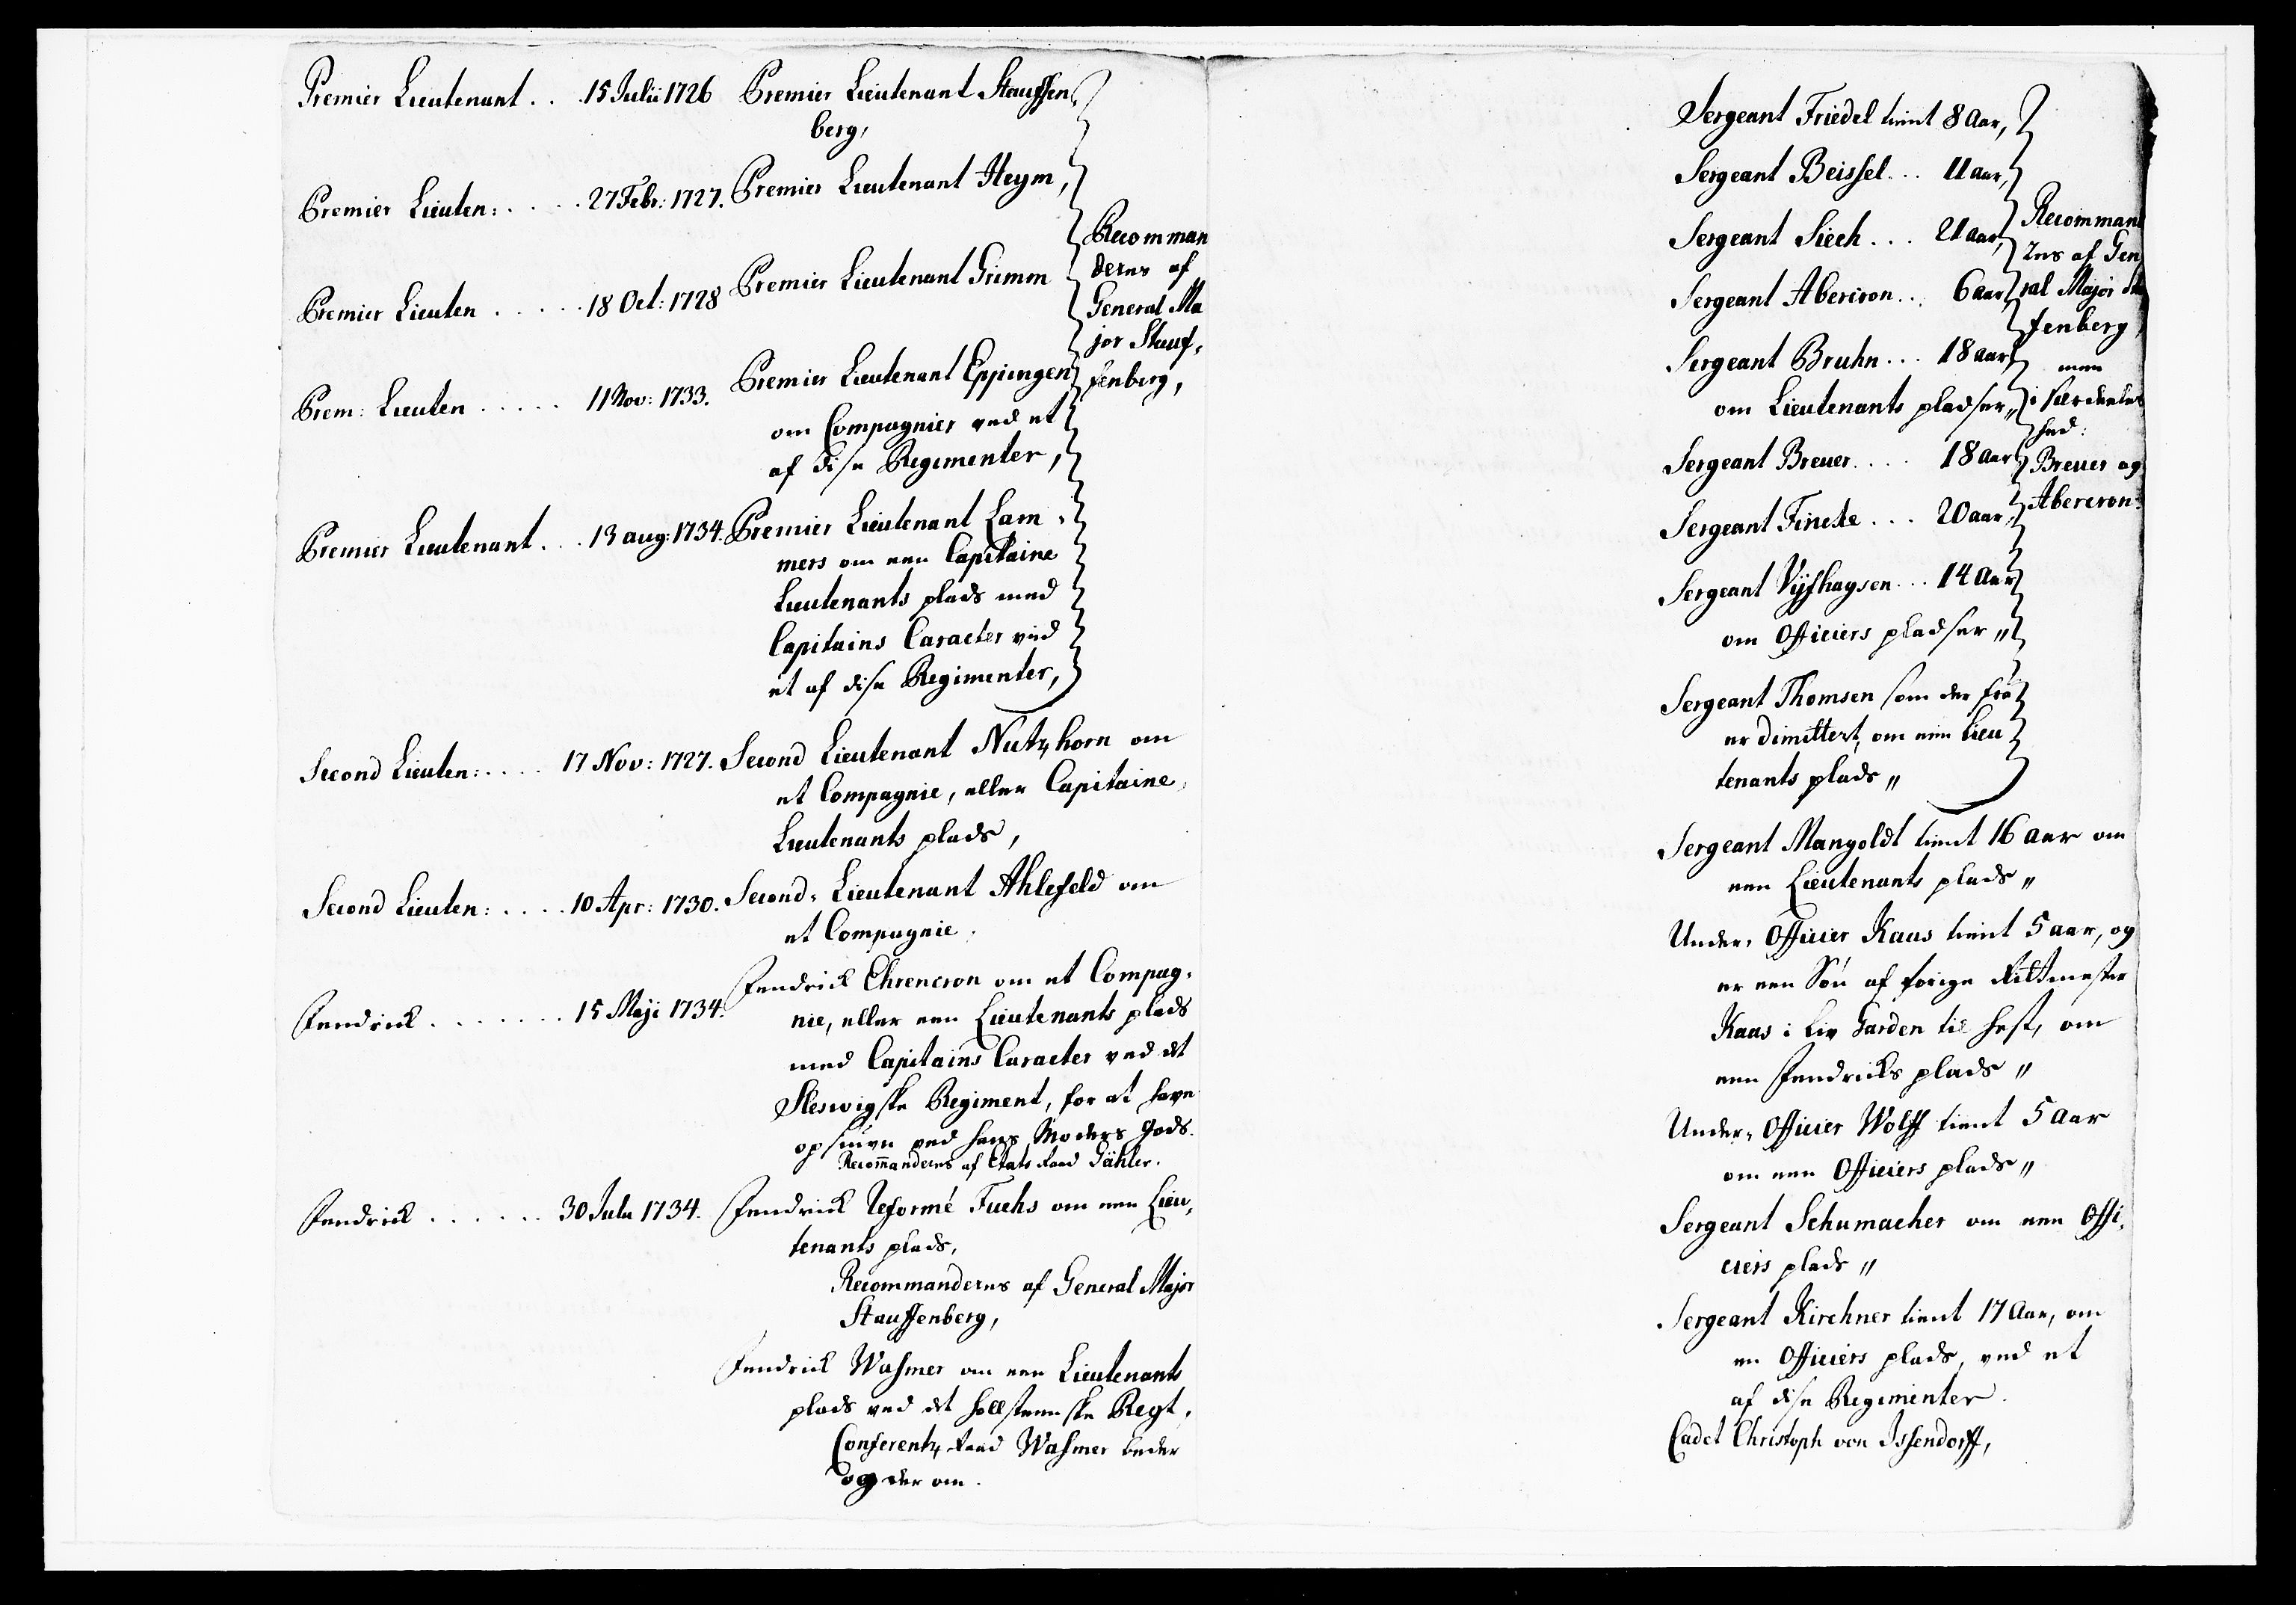 Premier Lieutenant . . . 15 Julii 1726 Premier Lieutenant Stauffen,
berg,
Premier Lieuten: . . . . . 27 Febr: 1727. Premier Lieutenant Heym,
Premier Lieuten . . . . . 18 Oct: 1728 Premier Lieutenant Grimm
Prem: Lieuten . . . . . 11 Nov: 1733. Premier Lieutenant Eppingen
om Compagnier ved et
af disse Regimenter,
Premier Lieutenant . . . 13 aug: 1734. Premier Lieutenant Lam,
mers om een Capitaine
Lieutenants plads med
Capitains Caracter ved
et af disse Regimenter,
Recomman
deres af
General Ma
jor Stauf,
fenberg,
Second Lieuten: . . . . 17 Nov: 1727. Second Lieutenant Nutzhorn om
et Compagnie, eller Capitaine,
Lieutenants plads,
Second Lieuten: . . . . 10 Apr: 1730. Second, Lieutenant Ahlefeld om
et Compagnie.
Fendrick . . . . . . . 15 Maji 1734. Fendrick Ehrencron om et Compag,
nie, eller een Lieutenants plads
med Capitains Caracter ved det
Sleswigske Regiment, for at have
opsiun ved hans Moders Gods.
Recommanderes af Etats Raad Gähler.
Fendrick . . . . . . 30 Julii 1734. Fendrick Reformé Fuchs om een Lieu,
tenants plads,
Recommanderes af General Major
Stauffenberg,
Fendrick Wasmer om een Lieutenants
plads ved det hollsteenske Regt,
Conferentz Raad Wasmer beder
og der om.
Sergeant Friedel tient 8 Aar,
Sergeant Beissel . . . 11 aar,
Sergeant Siech . . . 21 aar,
Sergeant Abercron . . . 6 aar,
Sergeant Bruhn . . . 18 aar,
om Lieutenants pladser,,
Sergeant Breuer . . . . 18 aar
Sergeant Fincke . . . 20 aar,
Sergeant Vijfhagsen . . . 14 Aar
om Officiers pladser,,
Sergeant Thomsen som der fra
er dimittert, om een Lieu
tenants plads,,
Recomman
des af Gen
ral Major
fenberg,
men
i særdeeles
hed:
Breuer og
Abercron:
Sergeant Mangoldt tient 16 aar om
een Lieutenants plads,,
Under, Officier Kaas tient 5 aar, og
er een Sön af forige Rittmester
Kaas i Liv Garden til hest, om
een Fendricks plads,,
Under, Officier Wolff tient 5 Aar
om een Officiers plads,,
Sergeant Schumacher om een Offi,
ciers plads,,
Sergeant Kirchner tient 17 Aar, om
en Officiers plads, ved et
af disse Regimenter.
Cadet Christoph von Issendorff,